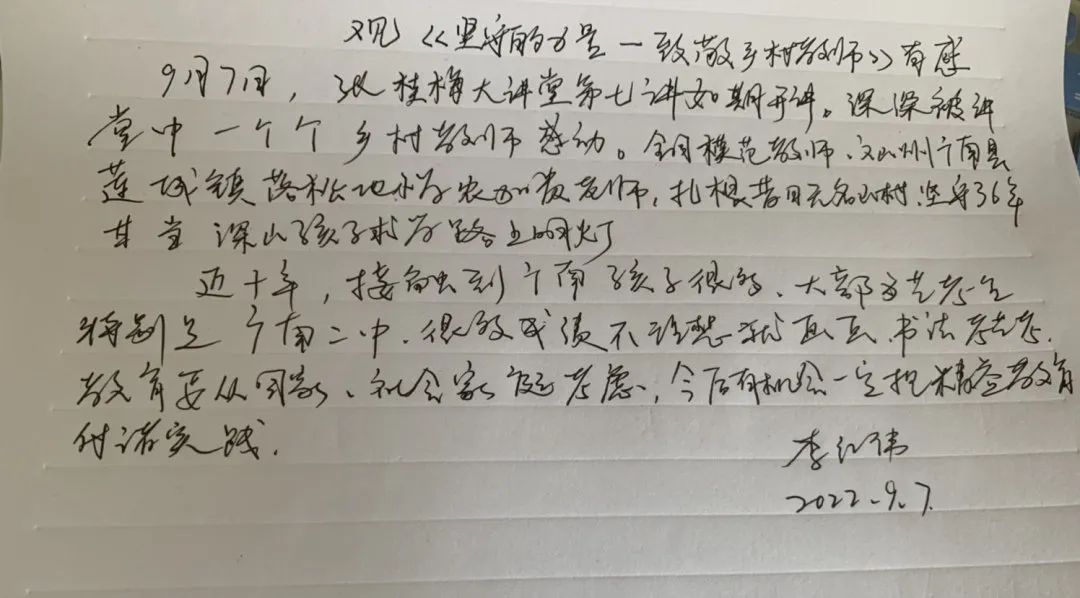 观《坚守的力量一致敬乡村教师》有感
9月7日，张桂梅大讲堂第七讲如期开讲。深深被讲
堂中一个个乡村教师感动。全国模范教师、文山州广南县
莲城镇落松地小学农加贵老师，扎根昔日无名山村，坚守36年
甘当深山孩子求学路上明灯
近十年，接触到广南孩子很多、大部分艺考生
特别是广南二中.很多成绩不理想就画画、书法考艺考.
教育要从国家、社会家庭考虑，今后有机会一定把精查教育
付诸实践.
李红伟
2022.9.7